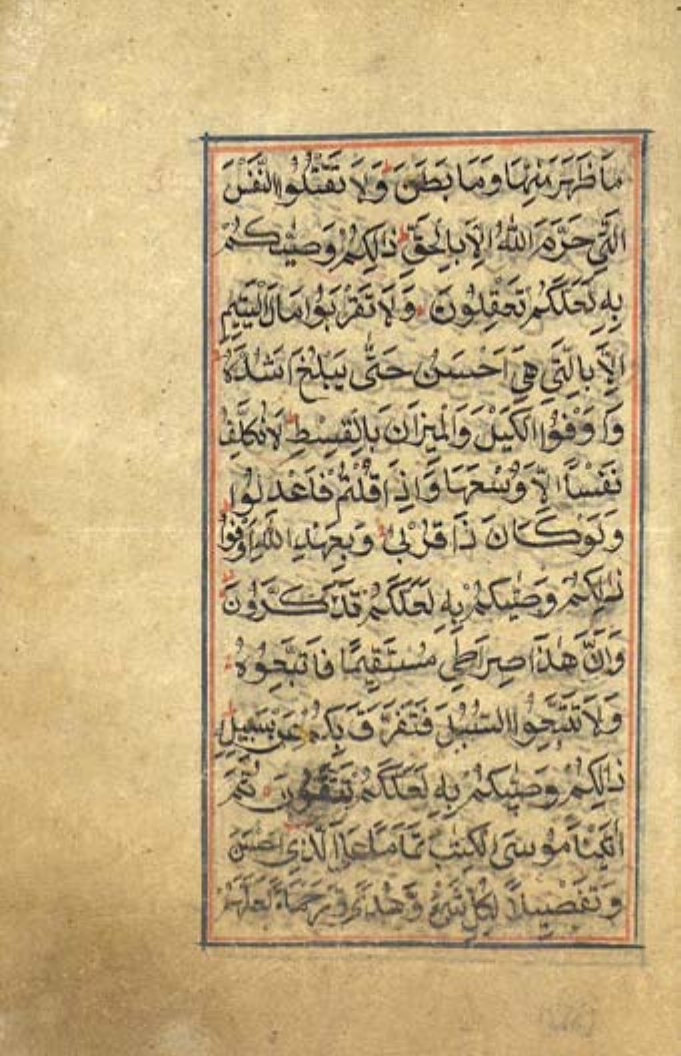 مَا ظَهَرَ مِنْهَا وَمَا بَطَنَ وَلَا تَقْتُلُوا النَّفْسَ
الَّتِي حَرَّمَ اللّٰهُ اِلَّا بِالْحَقِّ ذٰلِكُمْ وَصّٰيكُمْ
بِهِ لَعَلَّكُمْ تَعْقِلُونَ وَلَا تَقْرَبُوا مَالَ الْيَتِيمِ
اِلَّا بِالَّتِي هِيَ اَحْسَنُ حَتّٰى يَبْلُغَ اَشُدَّهُ
وَاَوْفُوا الْكَيْلَ وَالْمِيزَانَ بِالْقِسْطِ لَا نُكَلِّفُ
نَفْسًا اِلَّا وُسْعَهَا وَاِذَا قُلْتُمْ فَاعْدِلُوا
وَلَوْ كَانَ ذَا قُرْبٰى وَبِعَهْدِ اللّٰهِ اَوْفُوا
ذٰلِكُمْ وَصّٰيكُمْ بِهِ لَعَلَّكُمْ تَذَكَّرُونَ
وَاَنَّ هٰذَا صِرَاطِي مُسْتَقِيمًا فَاتَّبِعُوهُ
وَلَا تَتَّبِعُوا السُّبُلَ فَتَفَرَّقَ بِكُمْ عَنْ سَبِيلِهِ
ذٰلِكُمْ وَصّٰيكُمْ بِهِ لَعَلَّكُمْ تَتَّقُونَ ثُمَّ
اٰتَيْنَا مُوسَى الْكِتٰبَ تَمَامًا عَلَى الَّذِي اَحْسَنَ
وَتَفْصِيلًا لِكُلِّ شَيْءٍ وَهُدًى وَرَحْمَةً لَعَلَّهُمْ